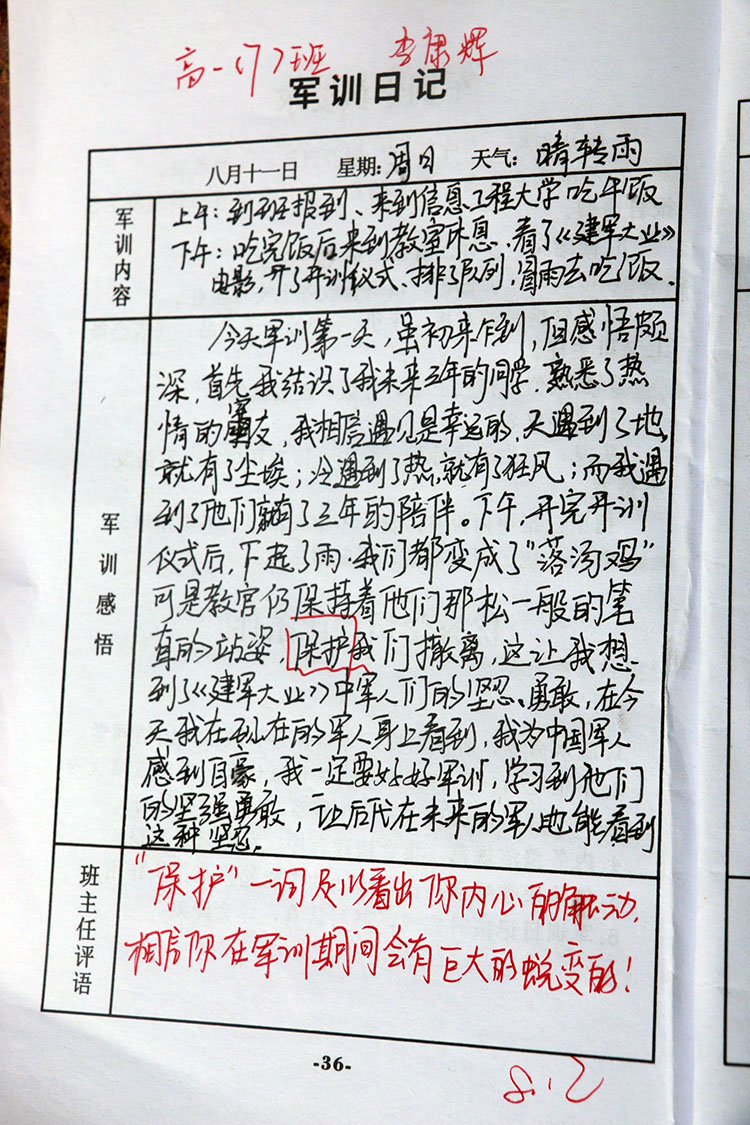 高一(7)班 李康辉
军训日记
八月十一日 星期：周日 天气：晴转雨
军训内容
上午：到班报到、来到信息工程大学吃午饭
下午：吃完饭后来到教室休息，看了《建军大业》
电影，开了开训仪式、排了队列，冒雨去吃饭．
军训感悟
今天军训第一天，虽初来乍到，但感悟颇
深，首先，我结识了我未来三年的同学．熟悉了热
情的室友，我相信遇见是幸运的，天遇到了地，
就有了尘埃；冷遇到了热，就有了狂风；而我遇
到了他们就有了三年的陪伴。下午，开完开训
仪式后，下起了雨．我们都变成了“落汤鸡”
可是教官仍保持着他们那松一般的笔
直的站姿，保护我们撤离，这让我想
到了《建军大业》中军人们的坚忍、勇敢，在今
天我在现在的军人身上看到，我为中国军人
感到自豪，我一定要好好军训，学习到他们
的坚强勇敢，让后代在未来的军人也能看到
这种坚忍．
班主任评语
“保护”一词足以看出你内心的触动，
相信你在军训期间会有巨大的蜕变的！
-36-
8.12